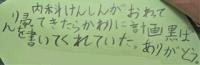 内科けんしんがおわって
帰ってきたらかわりに計画黒ば
りんを書いてくれていた。ありがとう。